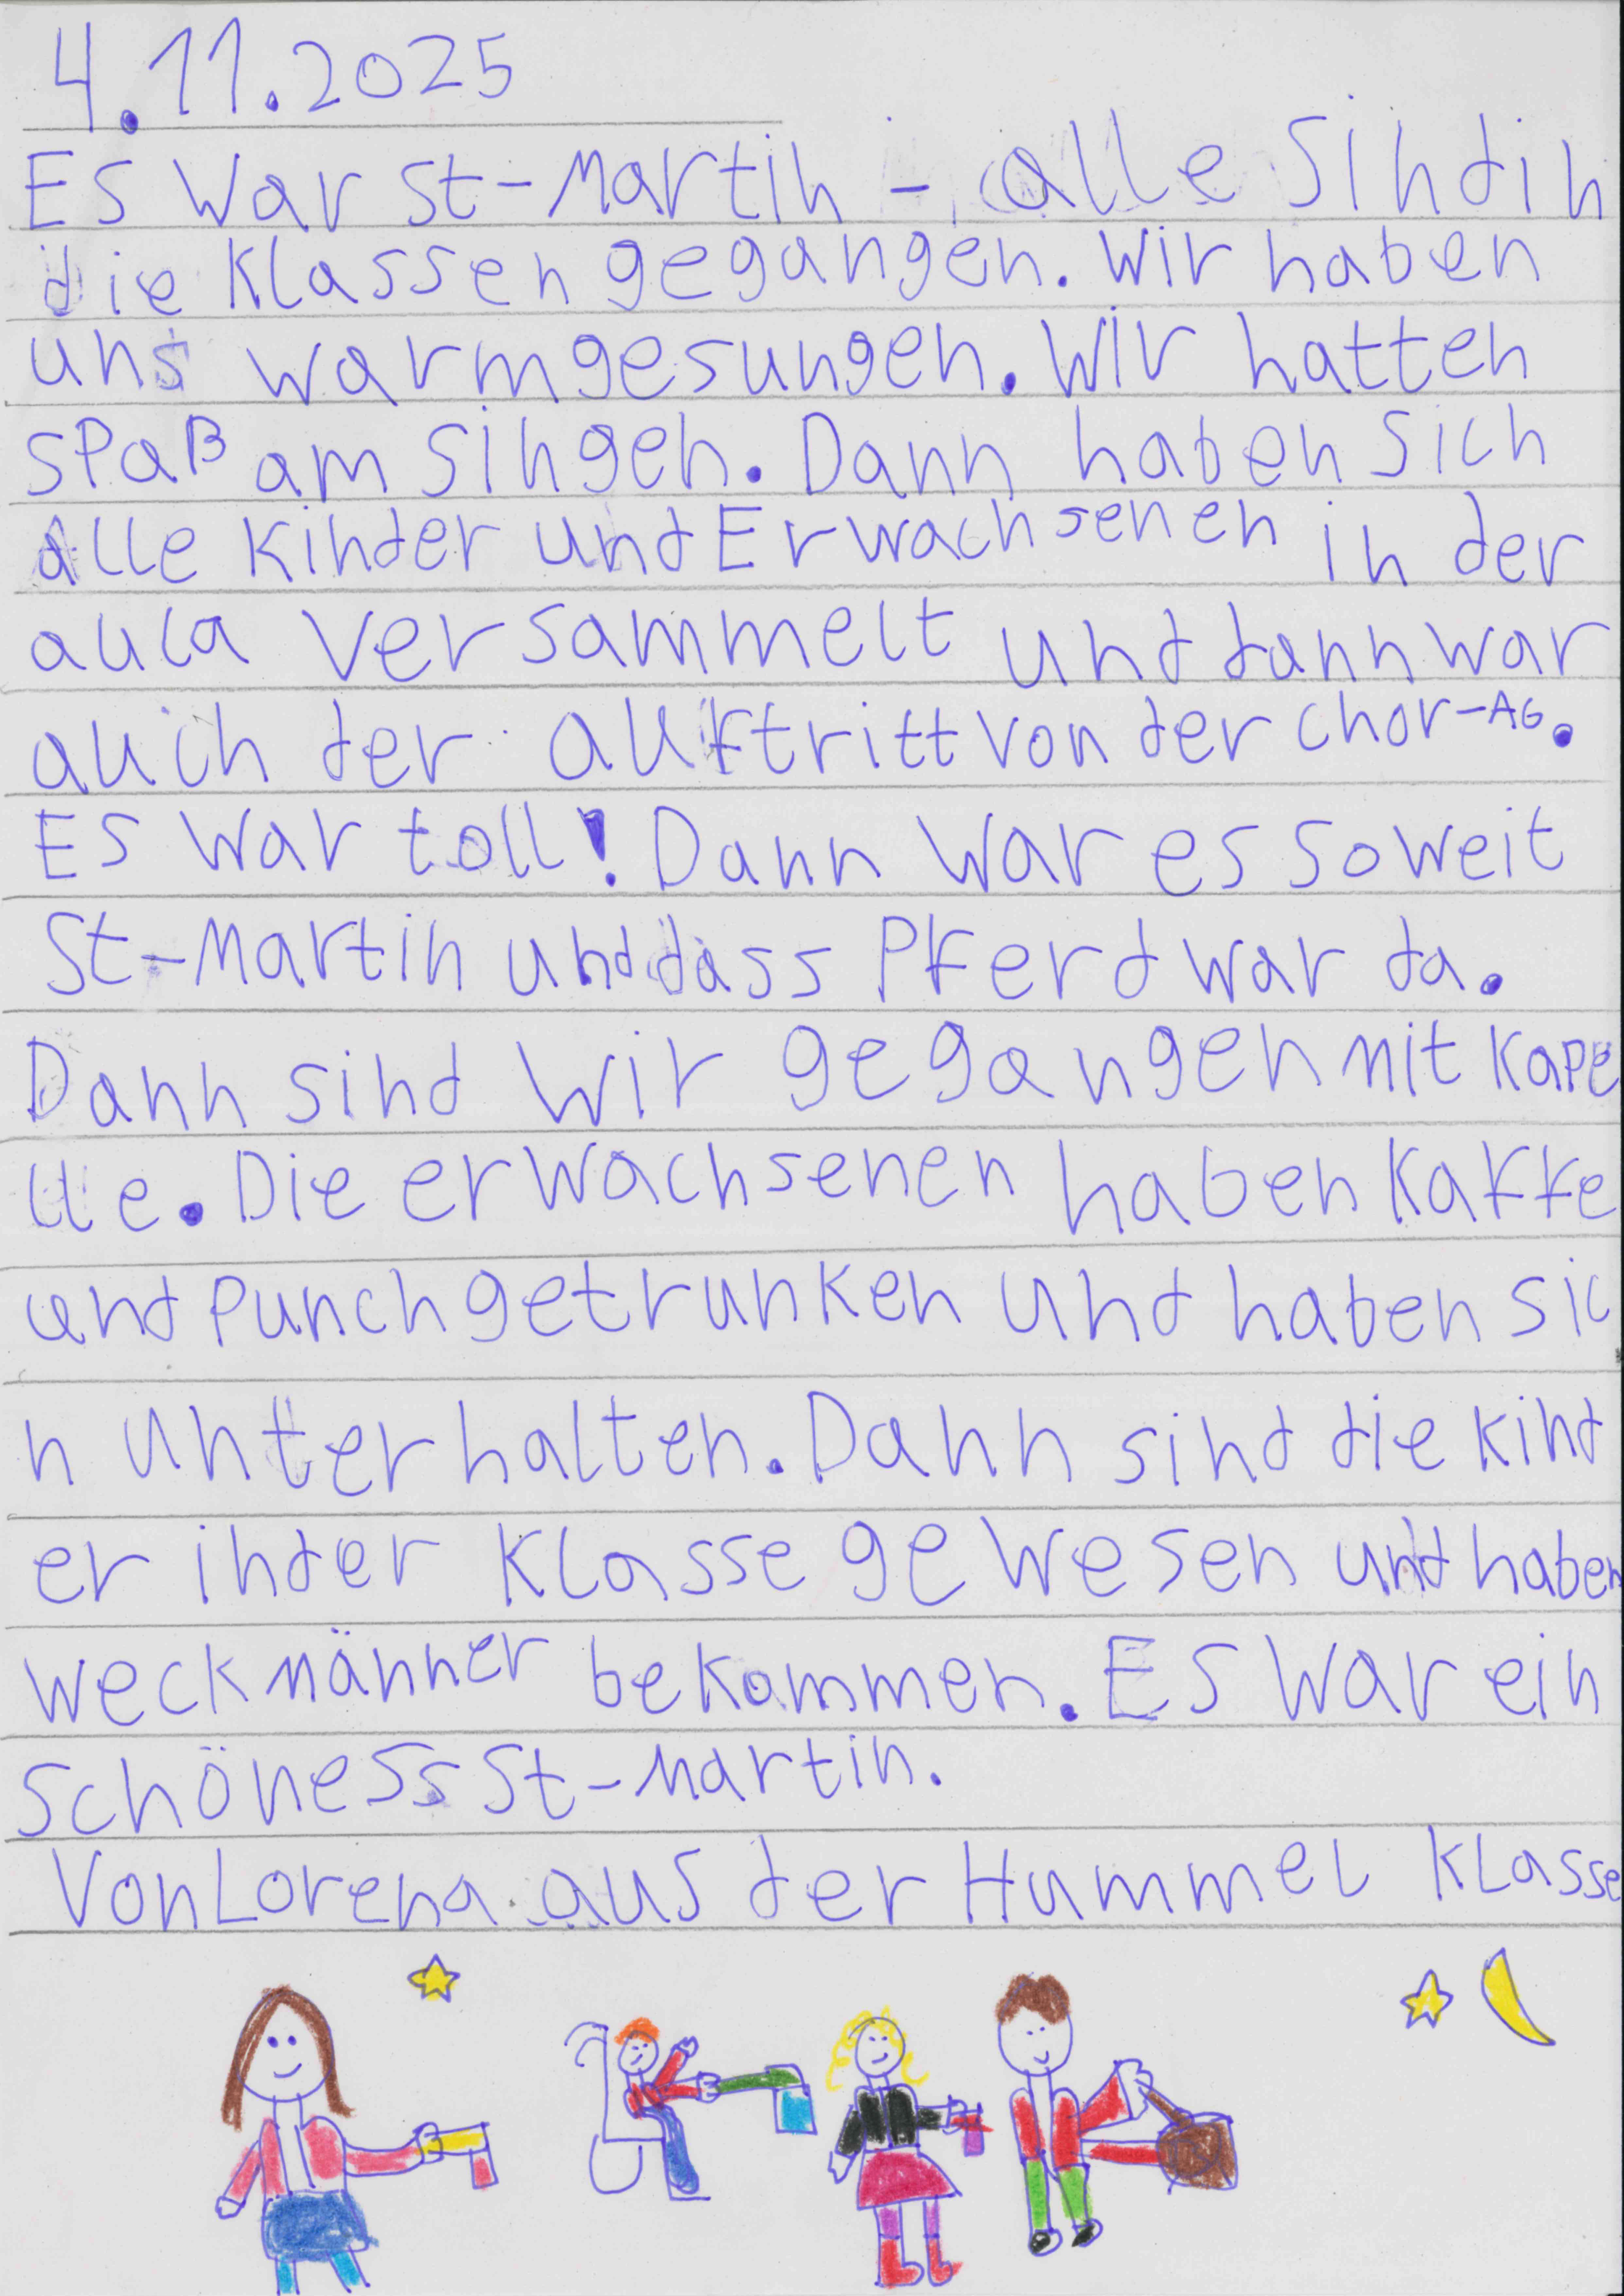 4.11.2025
Es war St-Martin - alle sind in
die Klassen gegangen. Wir haben
uns warmgesungen. Wir hatten
spaß am singen. Dann haben sich
alle Kinder und Erwachsenen in der
aula versammelt und dann war
auch der auftritt von der chor-AG.
Es war toll! Dann war es soweit
St-Martin und dass Pferd war da.
Dann sind wir gegangen mit Kape
lle. Die erwachsenen haben Kaffe
und Punch getrunken und haben sic
h unterhalten. Dann sind die Kind
er in der Klasse gewesen und haben
weckmänner bekommen. Es war ein
schöness St-Martin.
Von Lorena aus der Hummel Klasse